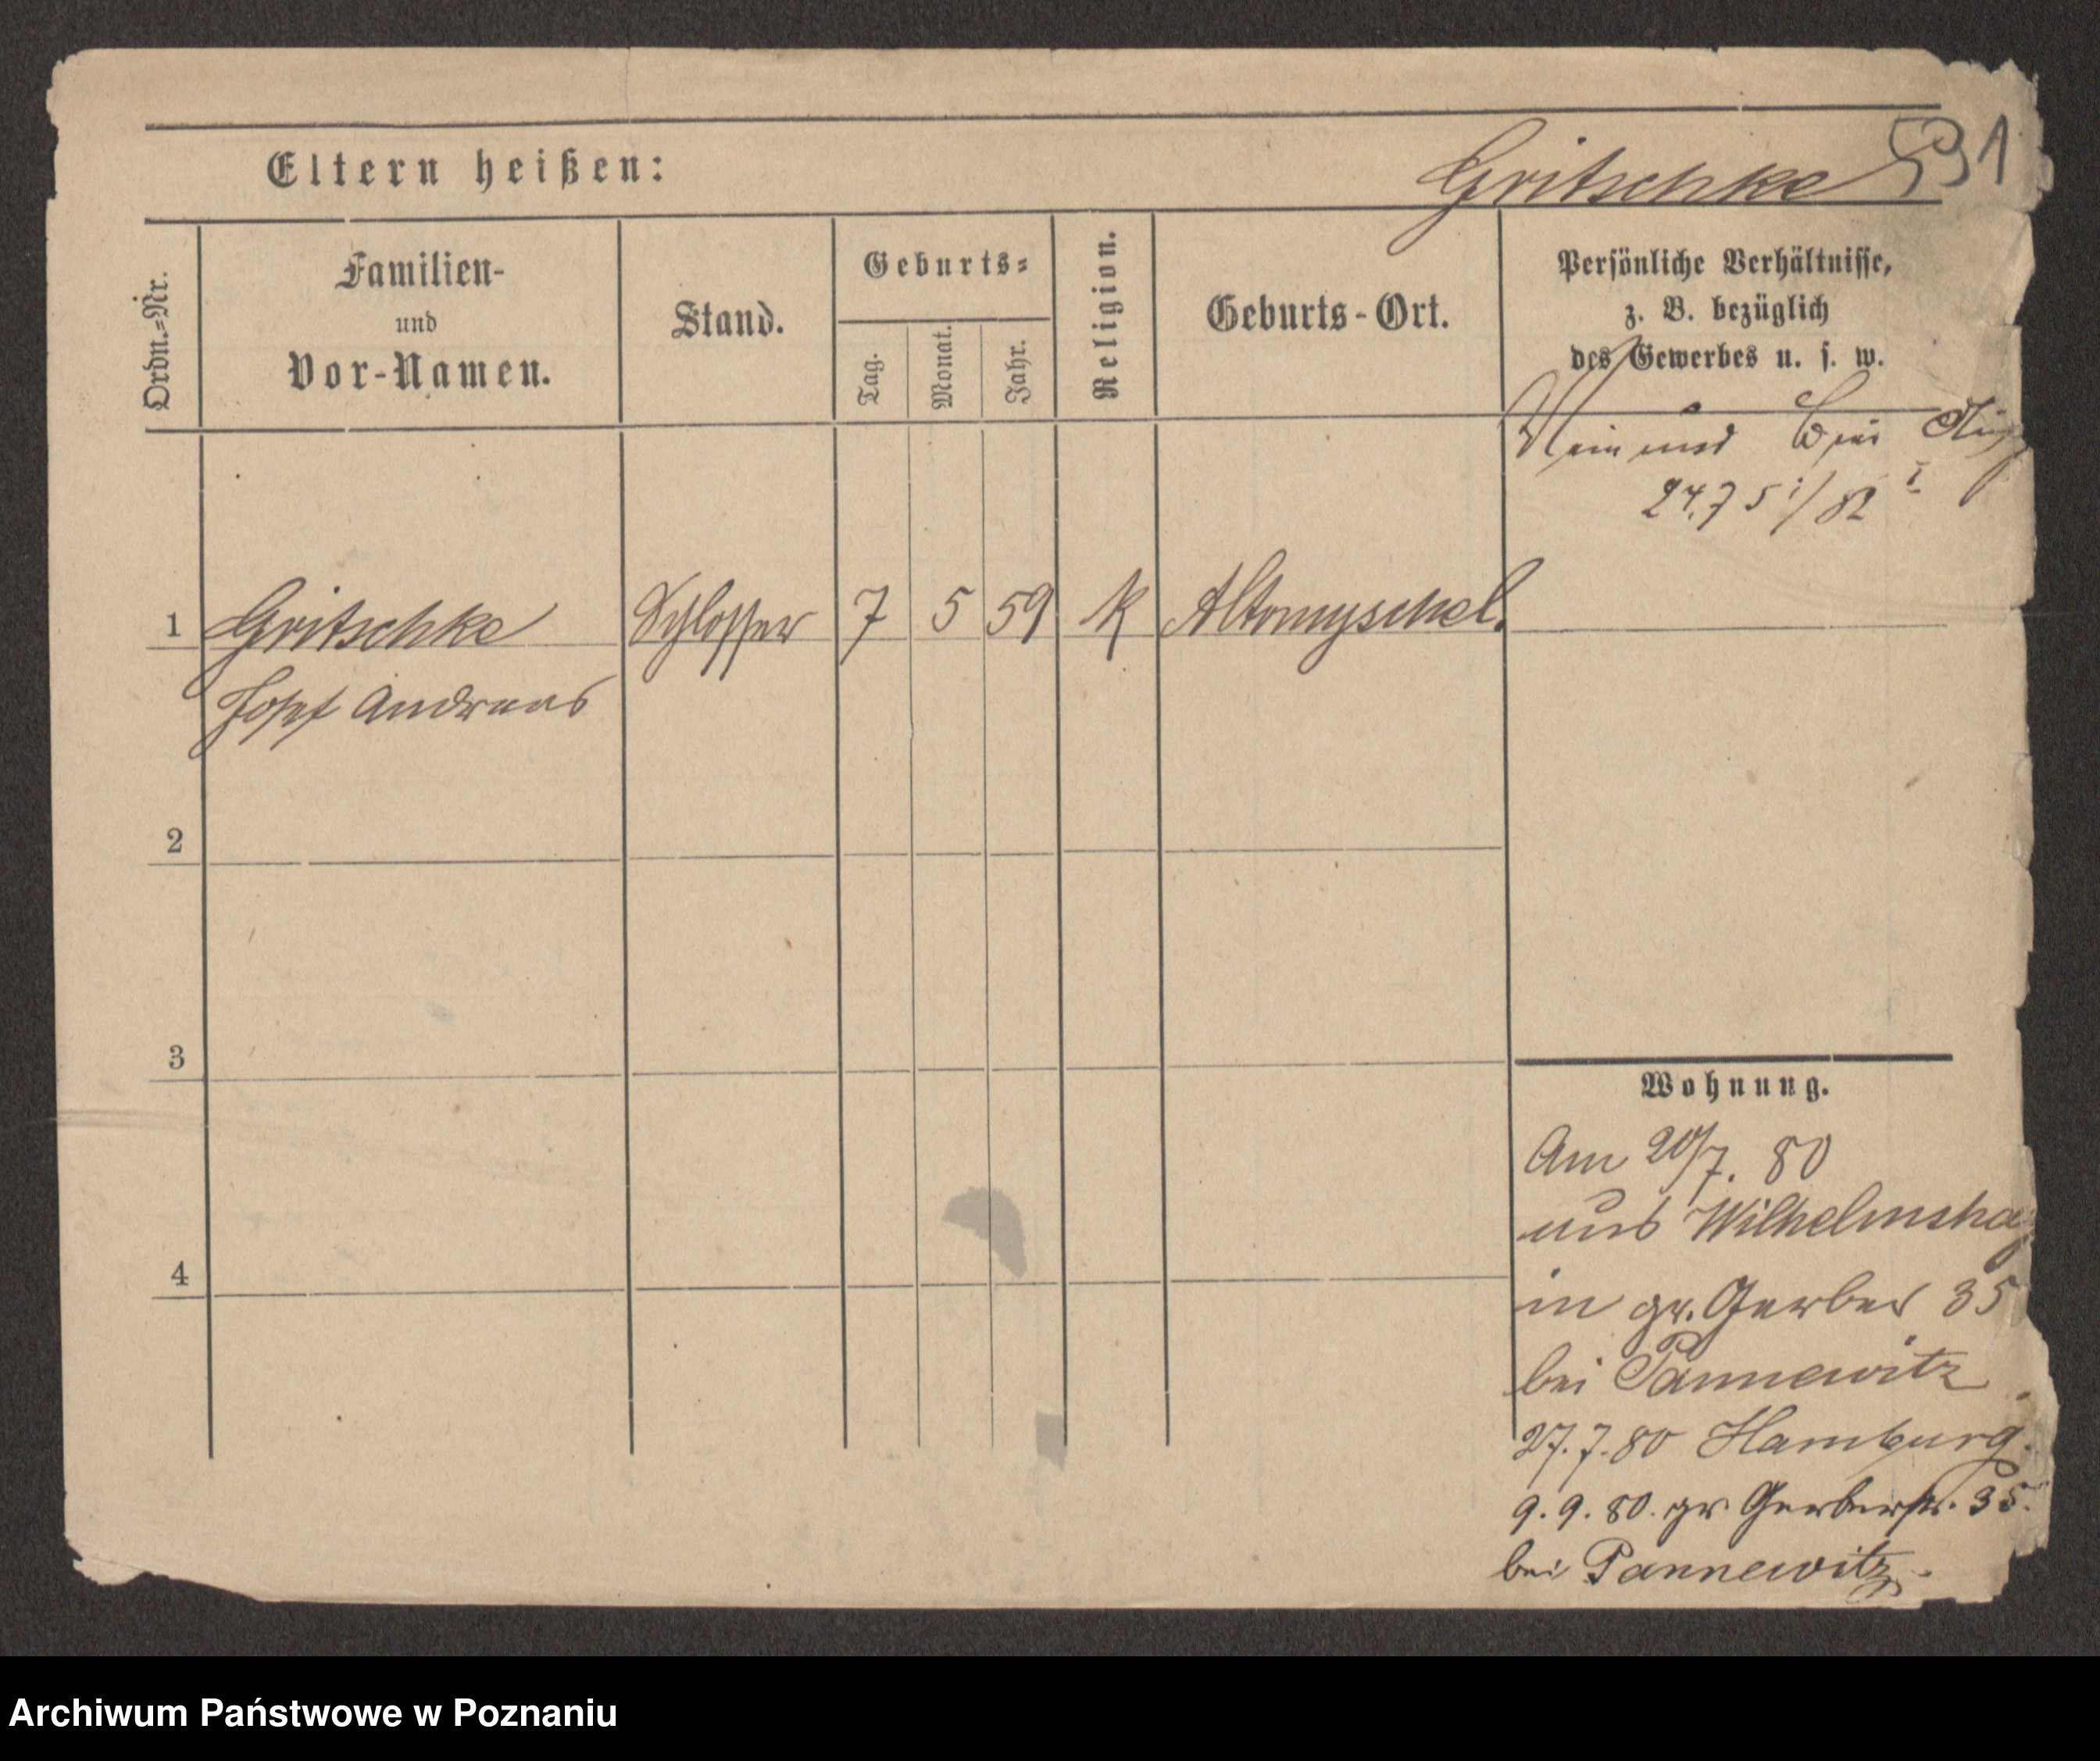 Eltern heißen:
Gritschke
591
Ordn.=Nr.
Familien-
und
Vor-Namen.
Stand.
Geburts=
Tag.
Monat.
Jahr.
Religion.
Geburts-Ort.
Persönliche Verhältnisse,
z. B. bezüglich
des Gewerbes u. s. w.
24.7
1 Gritschke Schlosser 7 5 59 K Altomyschel.
Josef Andreas
2
3
4
Wohnung.
Am 20/7. 80
aus Wilhelmsha
in gr. Gerber 35
bei Pannewitz
27.7.80 Hamburg.
9.9.80. gr. Gerberstr. 35.
bei Pannewitz.
Archiwum Państwowe w Poznaniu